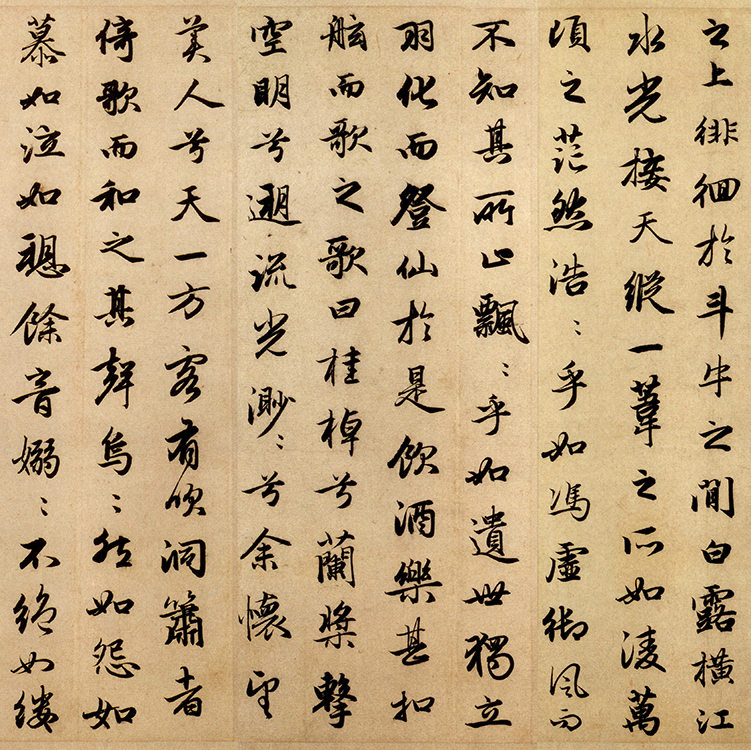 之上徘徊於斗牛之間白露橫江
水光接天縱一葦之所如凌萬
頃之茫然浩〻乎如馮虛御風而
不知其所止飄〻乎如遺世獨立
羽化而登仙於是飲酒樂甚扣
舷而歌之歌曰桂棹兮蘭槳擊
空明兮遡流光渺〻兮余懷望
美人兮天一方客有吹洞簫者
倚歌而和之其聲烏〻然如怨如
慕如泣如愬餘音嫋〻不絕如縷